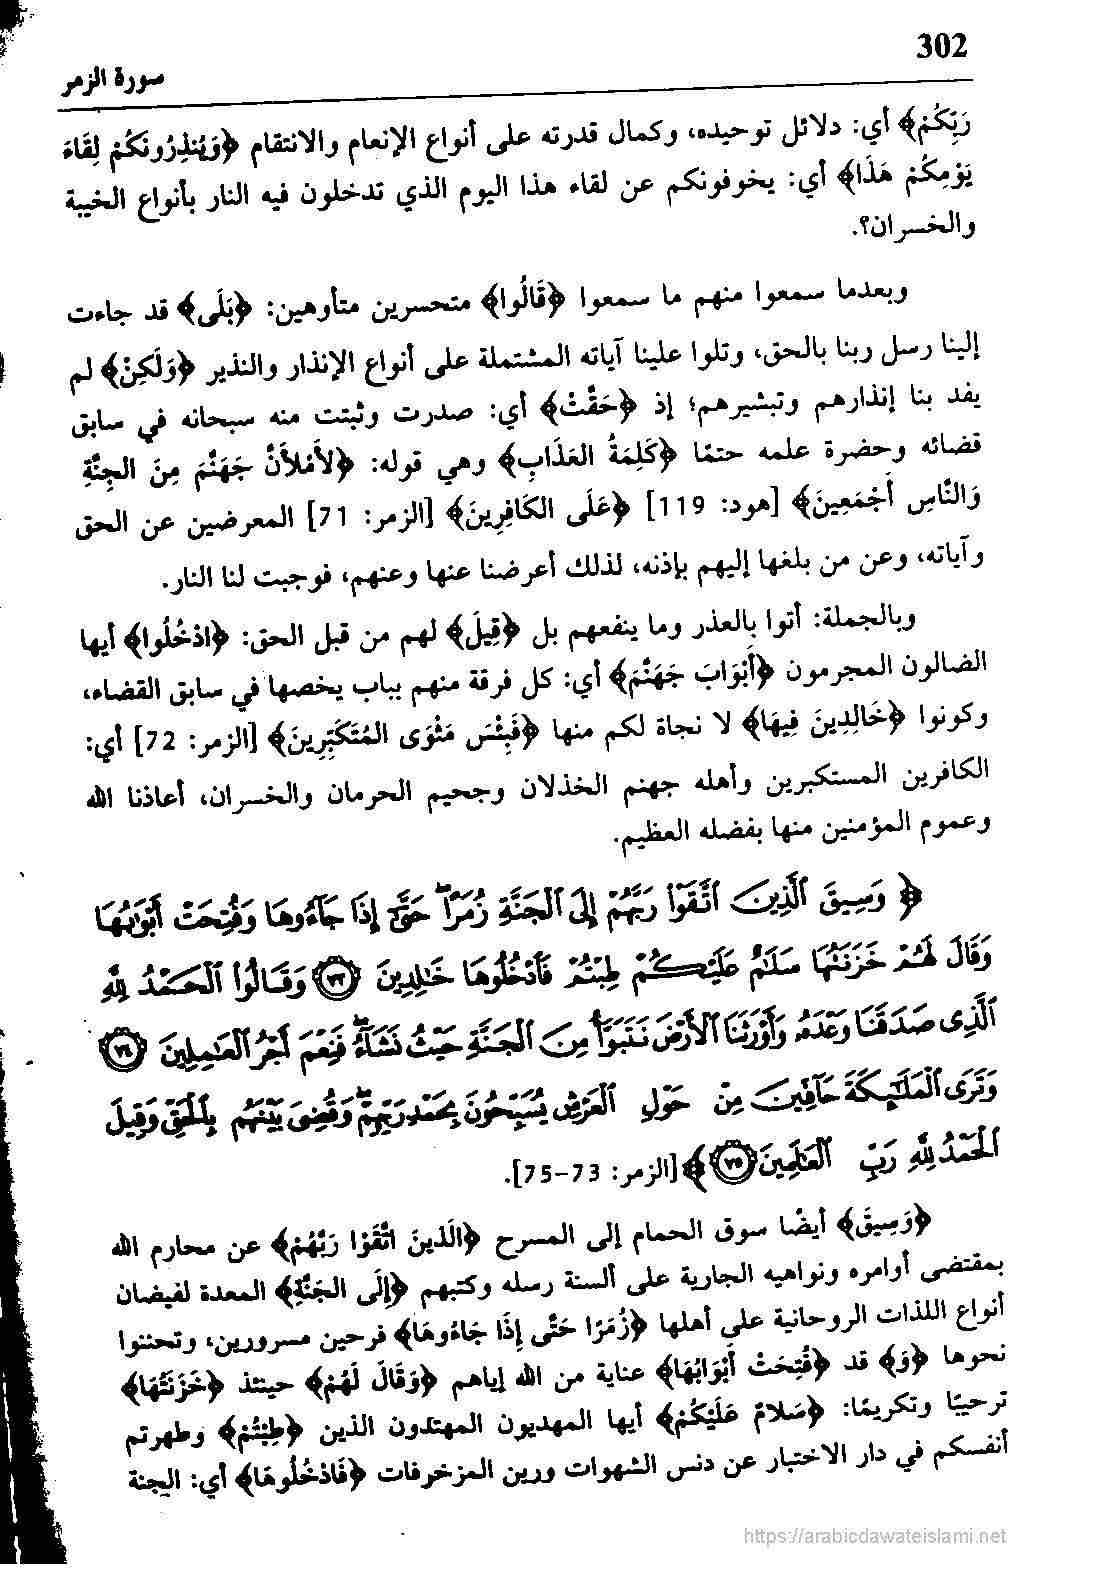 302
سورة الزمر
رَبِّكُمْ﴾ أي: دلائل توحيده، وكمال قدرته على أنواع الإنعام والانتقام ﴿وَيُنذِرُونَكُمْ لِقَاءَ
يَوْمِكُمْ هَذَا﴾ أي: يخوفونكم عن لقاء هذا اليوم الذي تدخلون فيه النار بأنواع الخيبة
والخسران؟.
وبعدما سمعوا منهم ما سمعوا ﴿قَالُوا﴾ متحسرين متأوهين: ﴿بَلَى﴾ قد جاءت
إلينا رسل ربنا بالحق، وتلوا علينا آياته المشتملة على أنواع الإنذار والنذير ﴿وَلَكِنْ﴾ لم
يفد بنا إنذارهم وتبشيرهم؛ إذ ﴿حَقَّتْ﴾ أي: صدرت وثبتت منه سبحانه في سابق
قضائه وحضرة علمه حتمًا ﴿كَلِمَةُ العَذَابِ﴾ وهي قوله: ﴿لأَمْلأَنَّ جَهَنَّمَ مِنَ الجِنَّةِ
وَالنَّاسِ أَجْمَعِينَ﴾ [هود: 119] ﴿عَلَى الكَافِرِينَ﴾ [الزمر: 71] المعرضين عن الحق
وآياته، وعن من بلغها إليهم بإذنه، لذلك أعرضنا عنها وعنهم، فوجبت لنا النار.
وبالجملة: أتوا بالعذر وما ينفعهم بل ﴿قِيلَ﴾ لهم من قبل الحق: ﴿ادْخُلُوا﴾ أيها
الضالون المجرمون ﴿أَبْوَابَ جَهَنَّمَ﴾ أي: كل فرقة منهم بباب يخصها في سابق القضاء،
وكونوا ﴿خَالِدِينَ فِيهَا﴾ لا نجاة لكم منها ﴿فَبِئْسَ مَثْوَى المُتَكَبِّرِينَ﴾ [الزمر: 72] أي:
الكافرين المستكبرين وأهله جهنم الخذلان وجحيم الحرمان والخسران، أعاذنا الله
وعموم المؤمنين منها بفضله العظيم.
﴿ وَسِيقَ ٱلَّذِينَ ٱتَّقَوْا۟ رَبَّهُمْ إِلَى ٱلْجَنَّةِ زُمَرًا ۖ حَتَّىٰٓ إِذَا جَآءُوهَا وَفُتِحَتْ أَبْوَٰبُهَا
وَقَالَ لَهُمْ خَزَنَتُهَا سَلَٰمٌ عَلَيْكُمْ طِبْتُمْ فَٱدْخُلُوهَا خَٰلِدِينَ ٧٣ وَقَالُوا۟ ٱلْحَمْدُ لِلَّهِ
ٱلَّذِى صَدَقَنَا وَعْدَهُۥ وَأَوْرَثَنَا ٱلْأَرْضَ نَتَبَوَّأُ مِنَ ٱلْجَنَّةِ حَيْثُ نَشَآءُ ۖ فَنِعْمَ أَجْرُ ٱلْعَٰمِلِينَ ٧٤
وَتَرَى ٱلْمَلَٰٓئِكَةَ حَآفِّينَ مِنْ حَوْلِ ٱلْعَرْشِ يُسَبِّحُونَ بِحَمْدِ رَبِّهِمْ ۖ وَقُضِىَ بَيْنَهُم بِٱلْحَقِّ وَقِيلَ
ٱلْحَمْدُ لِلَّهِ رَبِّ ٱلْعَٰلَمِينَ ٧٥ ﴾ [الزمر: 73-75].
﴿وَسِيقَ﴾ أيضًا سوق الحمام إلى المسرح ﴿الَّذِينَ اتَّقَوْا رَبَّهُمْ﴾ عن محارم الله
بمقتضى أوامره ونواهيه الجارية على ألسنة رسله وكتبهم ﴿إِلَى الجَنَّةِ﴾ المعدة لفيضان
أنواع اللذات الروحانية على أهلها ﴿زُمَرًا حَتَّى إِذَا جَاءُوهَا﴾ فرحين مسرورين، وتحننوا
نحوها ﴿وَ﴾ قد ﴿فُتِحَتْ أَبْوَابُهَا﴾ عناية من الله إياهم ﴿وَقَالَ لَهُمْ﴾ حينئذ ﴿خَزَنَتُهَا﴾
ترحيبًا وتكريمًا: ﴿سَلامٌ عَلَيْكُمْ﴾ أيها المهديون المهتدون الذين ﴿طِبْتُمْ﴾ وطهرتم
أنفسكم في دار الاختبار عن دنس الشهوات ورين المزخرفات ﴿فَادْخُلُوهَا﴾ أي: الجنة
https://arabicdawateislami.net